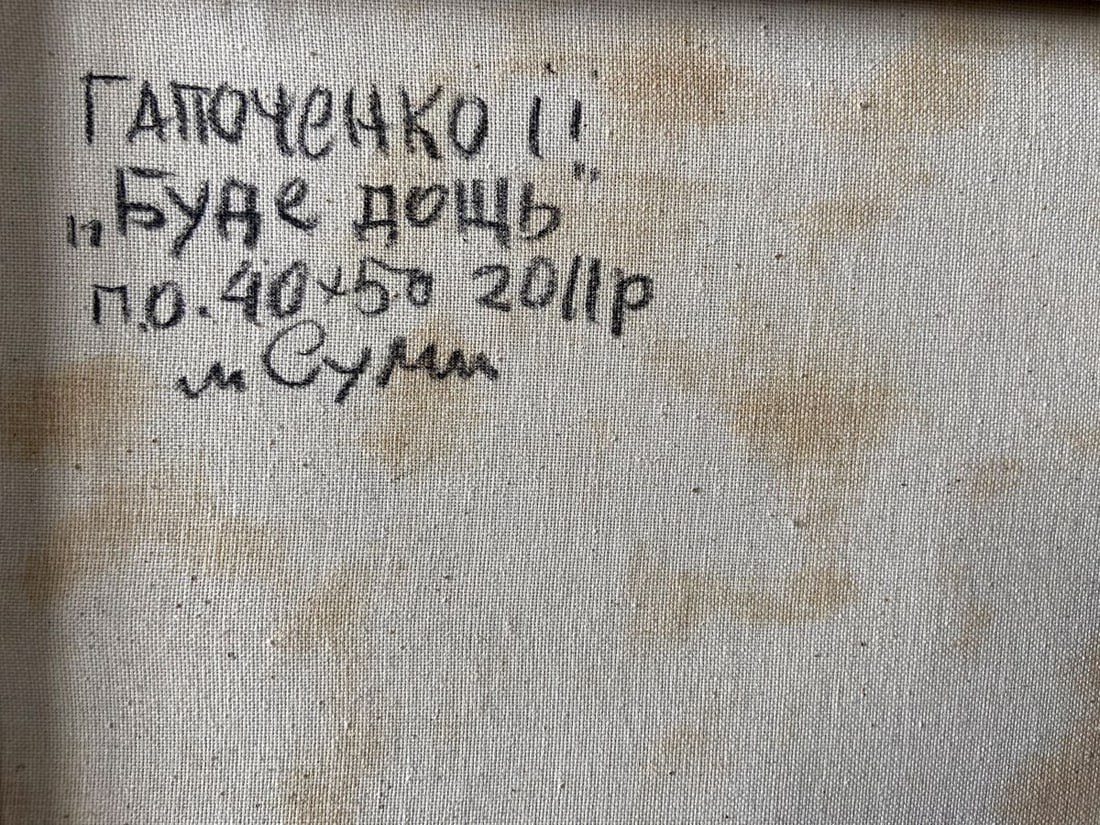 ГАПОЧЕНКО І!
„Буде дощь"
п.о. 40х50 2011р
м Суми